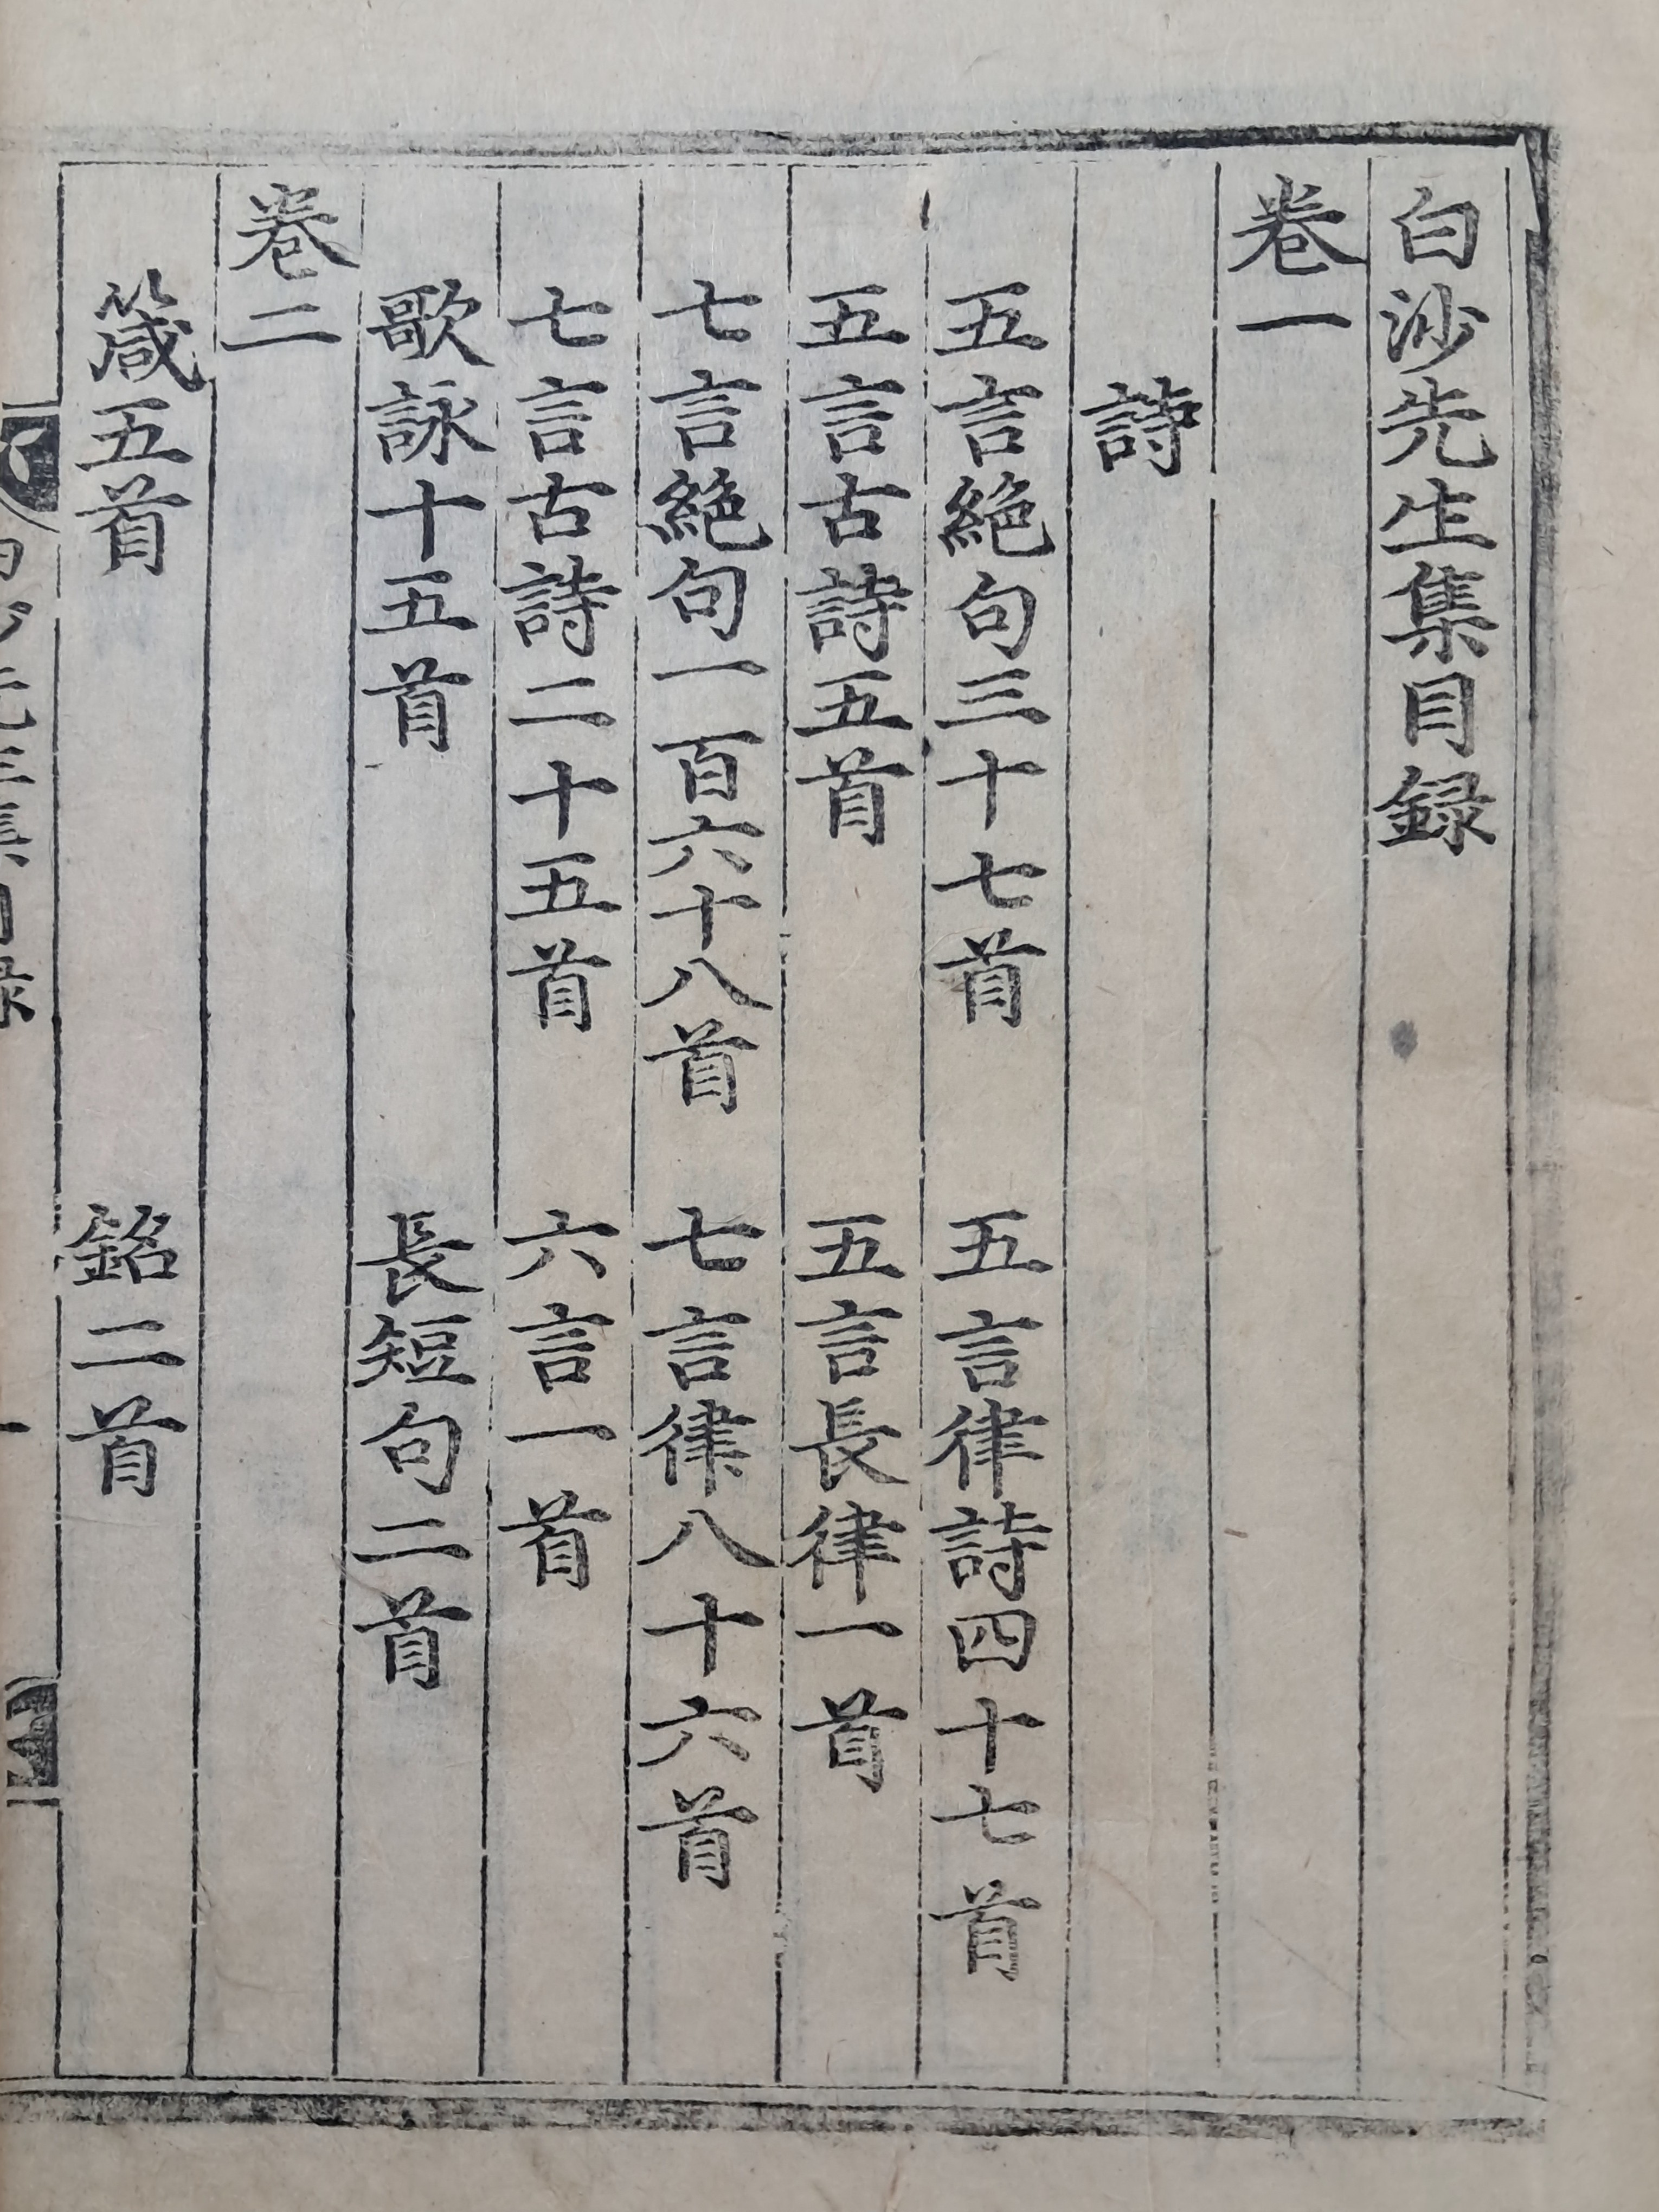 白沙先生集目録
卷一
詩
五言絕句三十七首　五言律詩四十七首
五言古詩五首　五言長律一首
七言絕句一百六十八首　七言律八十六首
七言古詩二十五首　六言一首
歌詠十五首　長短句二首
卷二
箴五首　銘二首